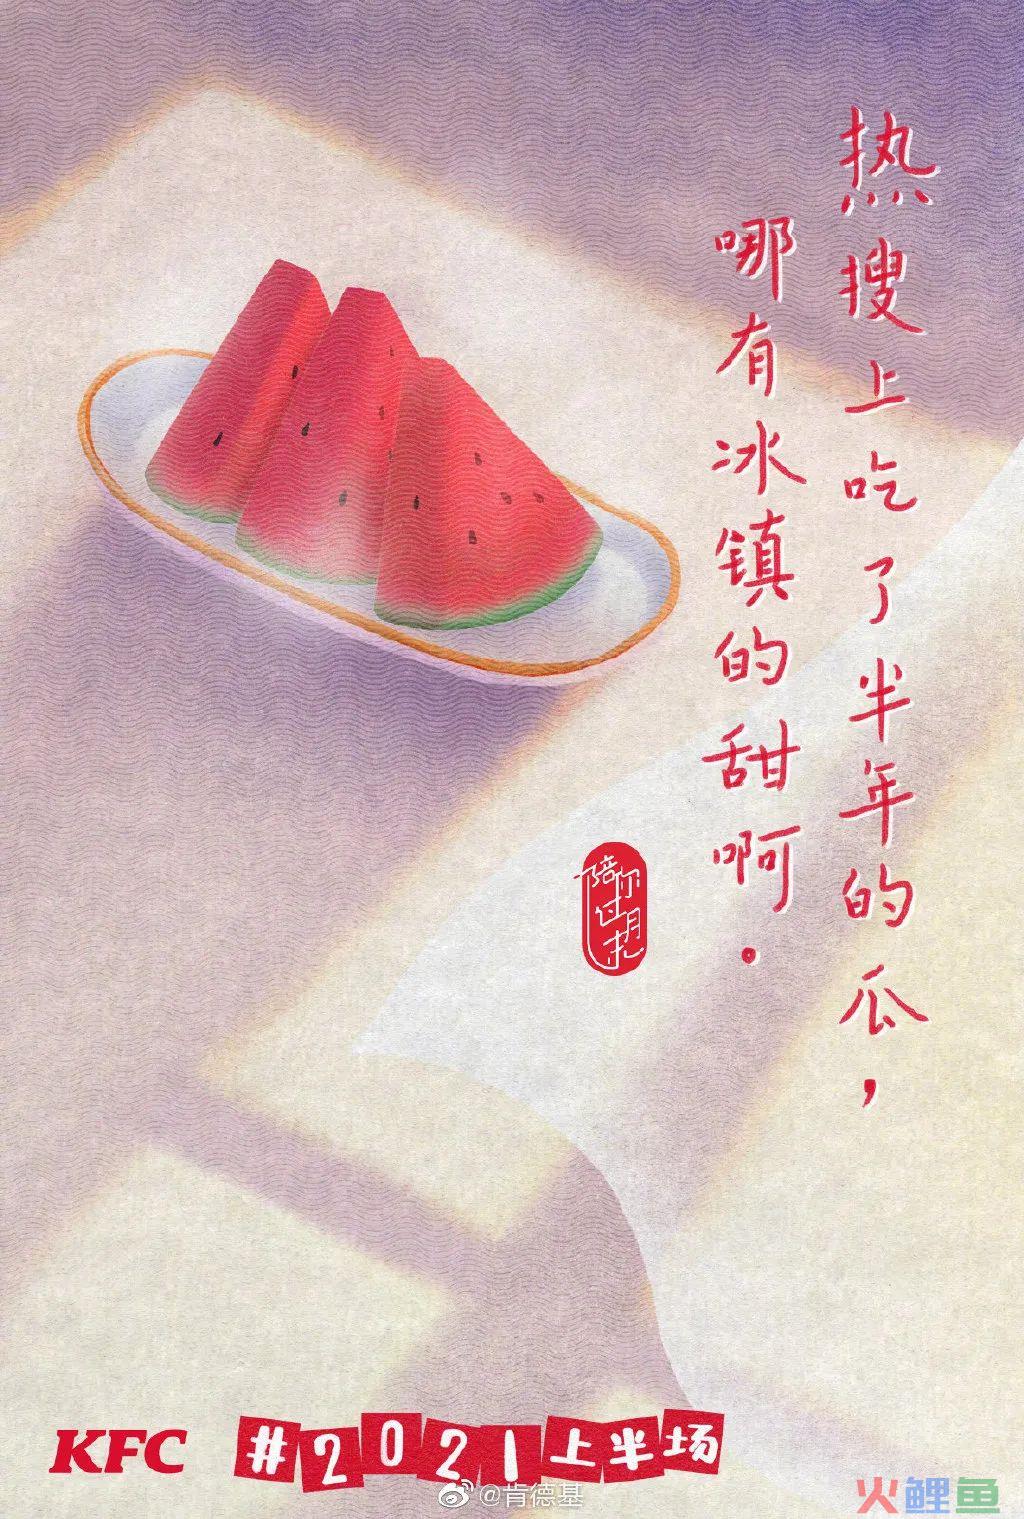 热搜上吃了半年的瓜，
哪有冰镇的甜啊．
陪你过
KFC
#2021上半场
@肯德基
火鲤鱼